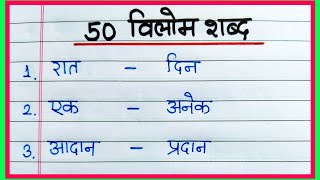 50 विलोम शब्द
1. रात - दिन
2. एक - अनेक
3. आदान - प्रदान